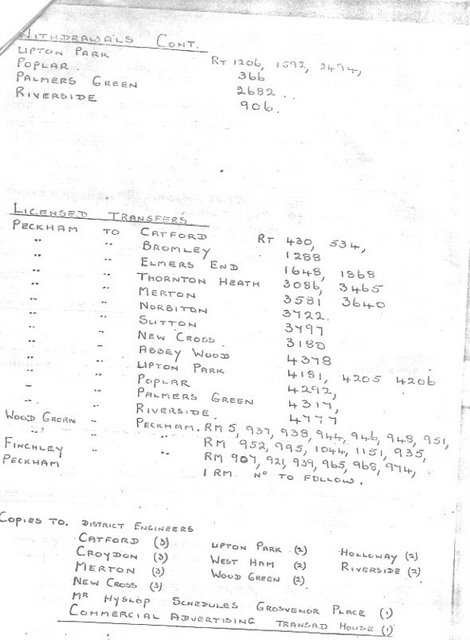 WITHDRAWALS CONT.
UPTON PARK RT 1206, 1592, 2494,
POPLAR. 366
PALMERS GREEN 2682..
RIVERSIDE 906.
LICENSED TRANSFERS
PECKHAM TO CATFORD RT 430, 534,
" " BROMLEY 1288
" " ELMERS END 1648, 1868
" " THORNTON HEATH 3086, 3465
" " MERTON 3581 3640
" " NORBITON 3722.
" " SUTTON 3797
" " NEW CROSS. 3180
" " ABBEY WOOD 4378
" " UPTON PARK 4181, 4205 4206
" " POPLAR 4292,
" " PALMERS GREEN 4317,
" " RIVERSIDE. 4777
WOOD GREEN " PECKHAM. RM 5, 937, 938, 944, 946, 948, 951,
" " " RM 952, 995, 1044, 1151, 935,
FINCHLEY " " RM 907, 921, 939, 965, 968, 974,
PECKHAM 1 RM. Nº TO FOLLOW.
COPIES TO. DISTRICT ENGINEERS
CATFORD (3) UPTON PARK (2) HOLLOWAY (2)
CROYDON (3) WEST HAM (2) RIVERSIDE (2)
MERTON (3) WOOD GREEN (2)
NEW CROSS (3)
MR HYSLOP SCHEDULES GROSVENOR PLACE (1)
COMMERCIAL ADVERTISING TRANSAD HOUSE (1)